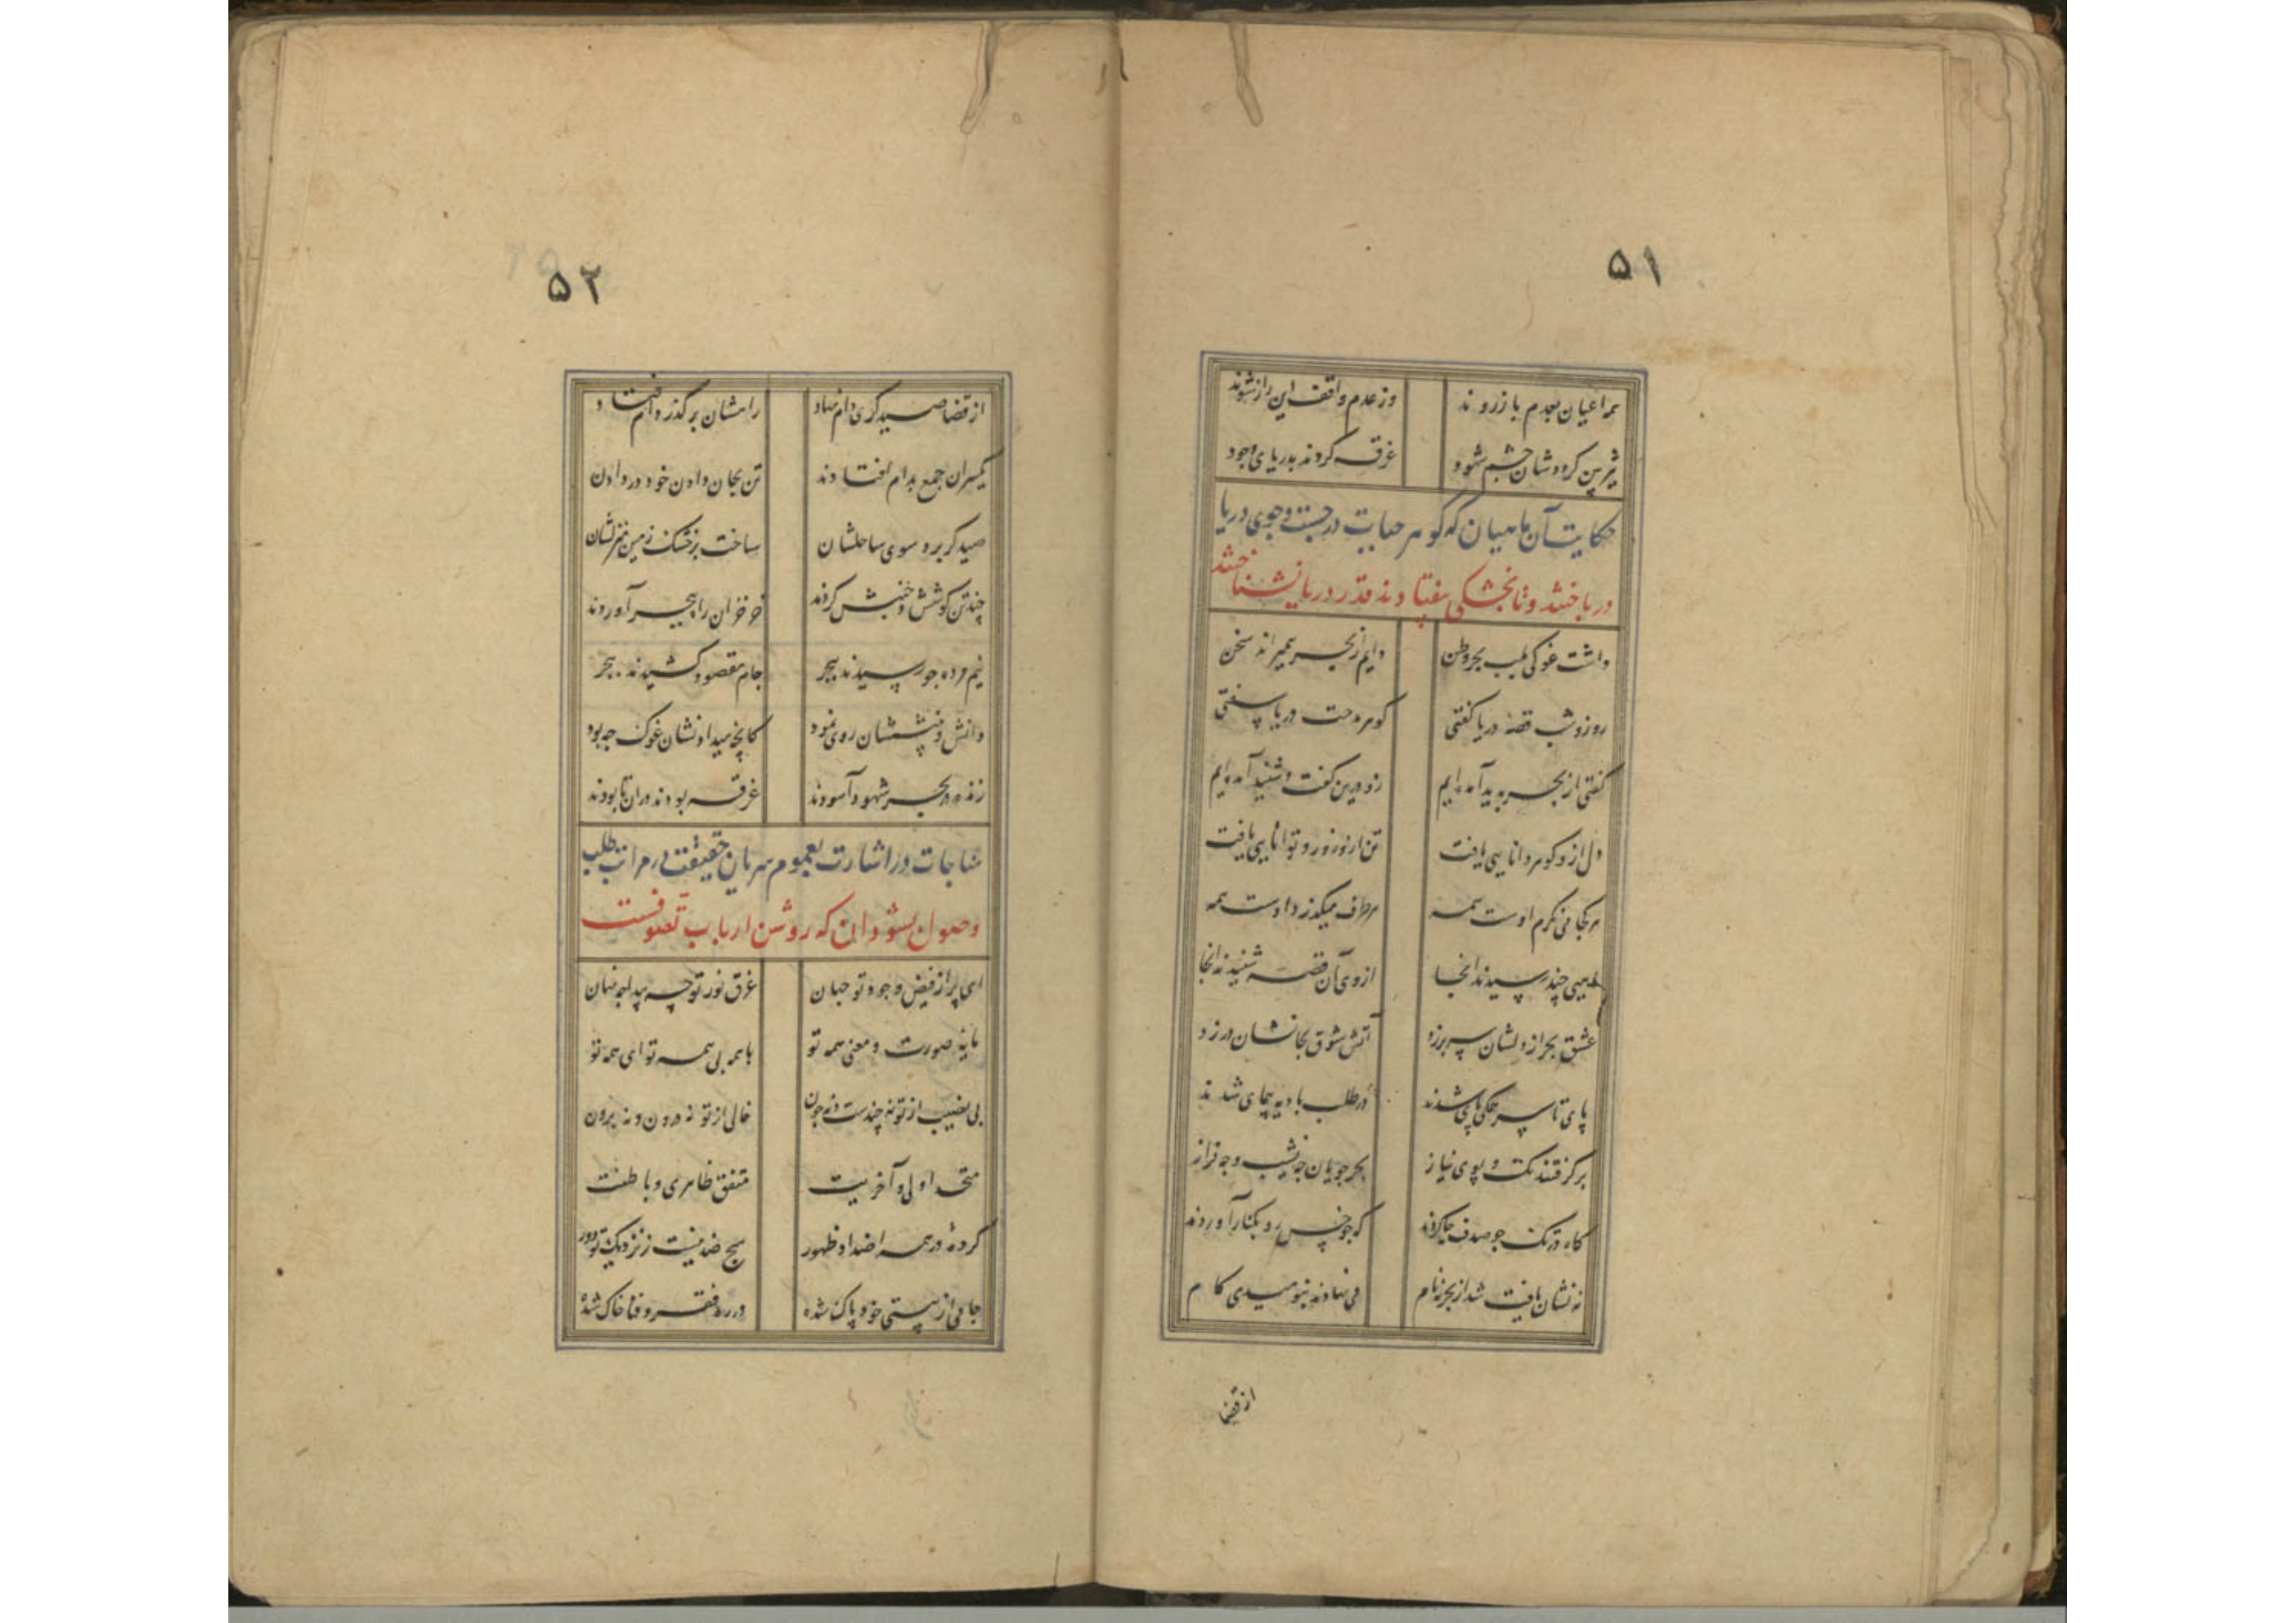 ۵۱
همه اعیان بعدم باز روند وز عدم واقف این راز شوند
تیزبین کرده شان چشم شهود غرقه کردند بدریای وجود
حکایت آن ماهیان که گوهر حیات در جست و جوی دریا
درباختند و تا بخشکی نیفتادند قدر دریا نشناختند
داشت غوکی بلب بحر وطن دایم از بحر همی راند سخن
روز و شب قصهٔ دریا گفتی گوهر مدحت دریا سفتی
گفتی از بحر پدید آمده ایم زو درین گفت و شنید آمده ایم
دل ازو گوهر دانایی یافت تن ازو زور و توانایی یافت
هر کجا می نگرم اوست همه هر طرف میگذرد اوست همه
ماهیی چند رسیدند آنجا از وی آن قصه شنیدند آنجا
عشق بحر از دلشان سر برزد آتش شوق بجانشان در زد
پای تا سر همگی پای شدند در طلب بادیه پیمای شدند
برگرفتند تک و پوی نیاز بحر جویان چه نشیب و چه فراز
گاه در تک چو صدف جا کردند گه چو خس رو بکنار آوردند
نه نشان یافت شد از بحر نه نام می نهادند بنومیدی گام
از قضا
۵۲
از قضا صیدگری دام نهاد راهشان بر گذر دام افتاد
یکسر آن جمع بدام افتادند تن بجان دادن خود در دادن
صیدگر برد سوی ساحلشان ساخت بر خشک زمین منزلشان
چند تن کوشش و جنبش کردند خزخزان را ببحر آوردند
نیم مرده چو رسیدند ببحر جام مقصود کشیدند ببحر
دانش و بینششان روی نمود کانچه میداد نشان غوک چه بود
زنده در بحر شهود آسودند غرقه بودند در آن تا بودند
مناجات در اشارت بعموم سریان حقیقت در مراتب طلب
وصول بشهود آن که روشن ارباب تصوفست
ای پر از فیض وجود تو جهان غرق نور تو چه پیدا چه نهان
مایهٔ صورت و معنی همه تو با همه بی همه تو ای همه تو
بی نصیب از تو نه چندست و نه چون خالی از تو نه درون و نه برون
متحد اولی و آخریت متفق ظاهری و باطنیت
کردهٔ در همه اضداد ظهور هیچ ضد نیست ز نزدیک تو دور
جامی از هستی خود پاک شده در ره فقر و فنا خاک شده